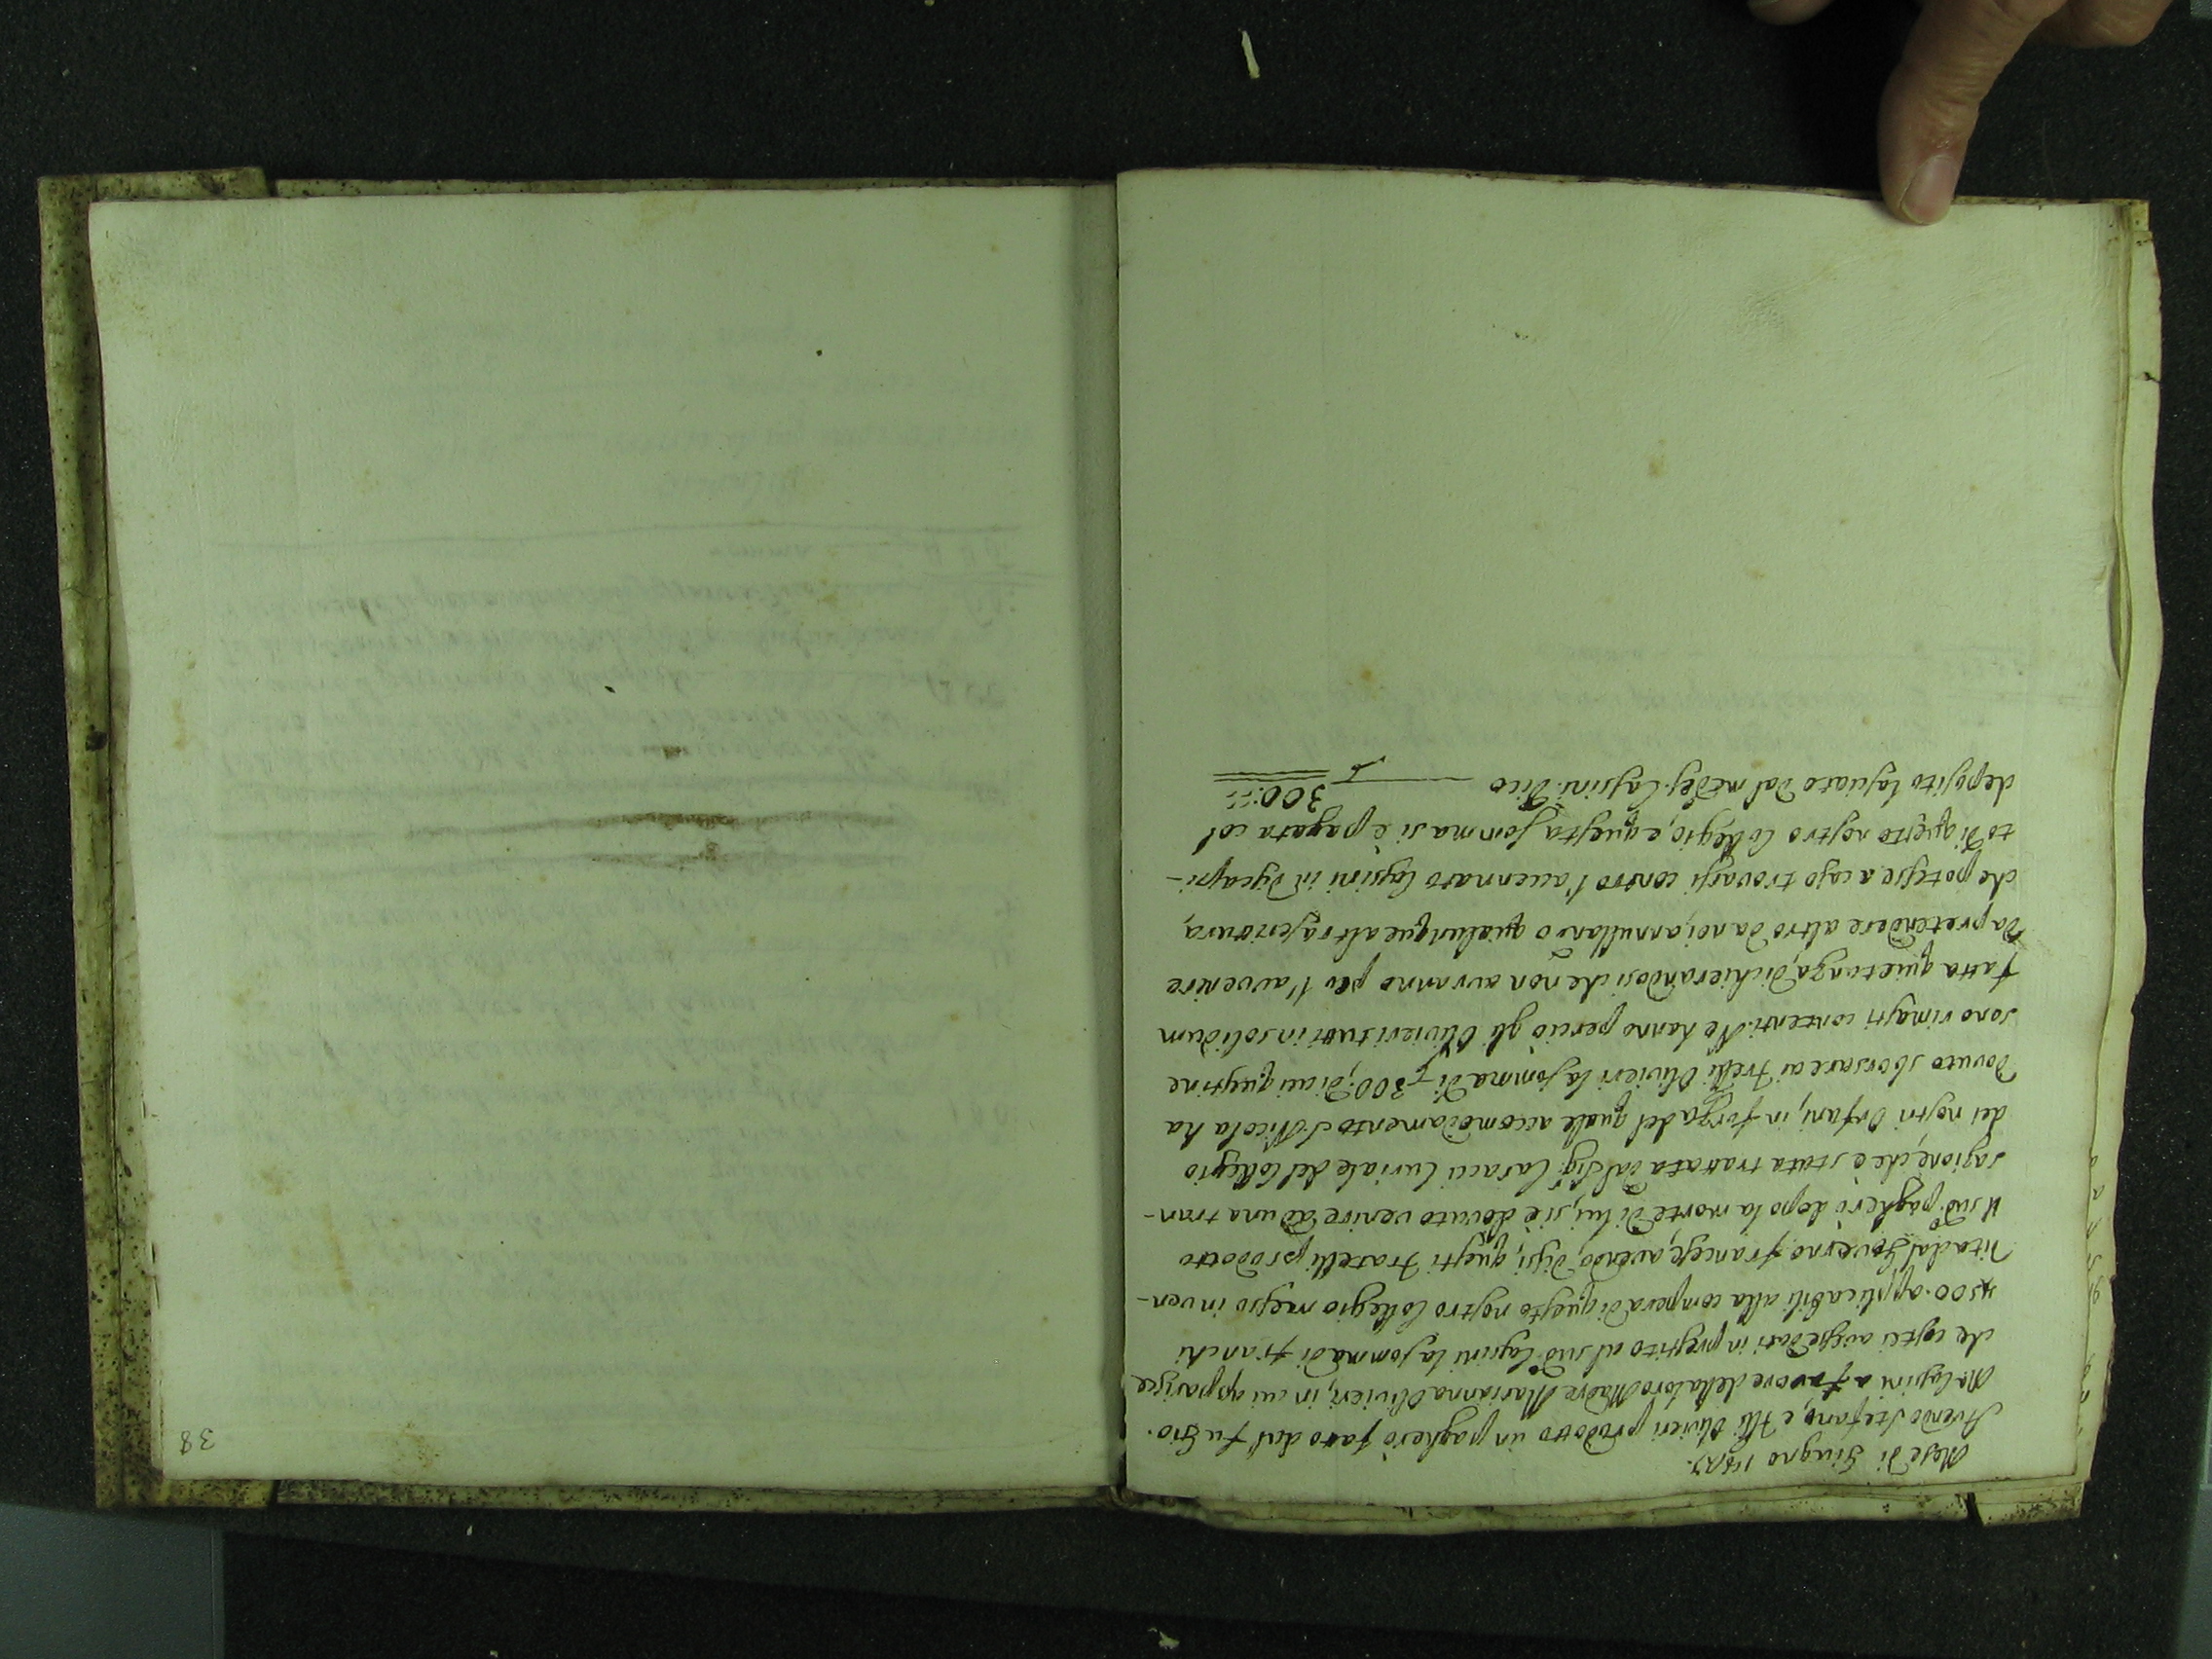 Mese di Giugno
Avendo Stefano, e Flli Olivieri prodotto un pagherò fatto dal fu Gio.
Ma Cassini a favore della loro Madre Marianna Olivieri, in cui apparisce
che essa avesse dati in prestito al sudo Cassini la somma di franchi
4500. applicabili alla compera di questo nostro Collegio messo in ven-
dita dal Governo francese, avendo, dissi, questi Fratelli prodotto
il sudo pagherò dopo la morte di lui, si è dovuto venire ad una tran-
sazione, che è stata trattata dal Sigr Curiale del Collegio
dei nostri Orfani, in forza del quale accomodamento S. Nicola ha
dovuto sborsare ai Frelli Olivieri la somma di 300; di cui questi ne
sono rimasti contenti. Ne hanno perciò gli Olivieri tutti in solidum
fatta quietanza, dichierandosi che non avranno per l'avvenire
da pretendere altro da noi, annullando qualunque altra scrittura,
che potesse a caso trovarsi contro l'accennato Cassini in discapi-
to di questo nostro Collegio, e questa somma si è pagata col
deposito lasciato dal medes. Cassini. Dico 300::
38